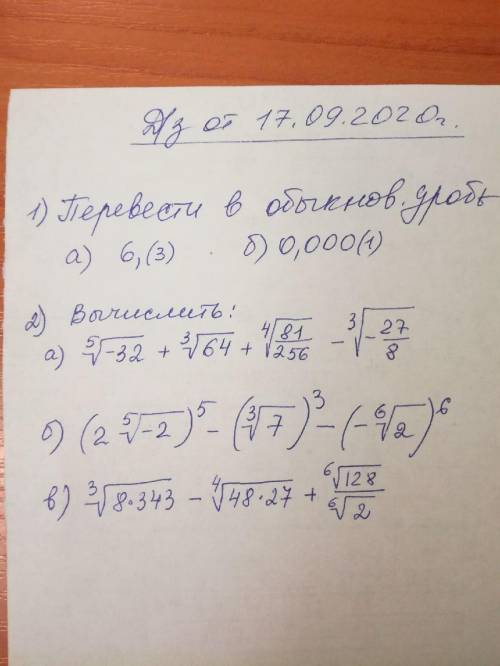 Д/з от 17.09.2020г.
1) Перевести в обыкнов. дробь
а) 6,(3) . б) 0,000(1)
2) Вычислить:
а) ⁵√-32 + ³√64 + ⁴√81/256 - ³√-27/8
б) (2 ⁵√-2)⁵ - (³√7)³ - (-⁶√2)⁶
в) ³√8·343 - ⁴√48·27 + ⁶√128/⁶√2